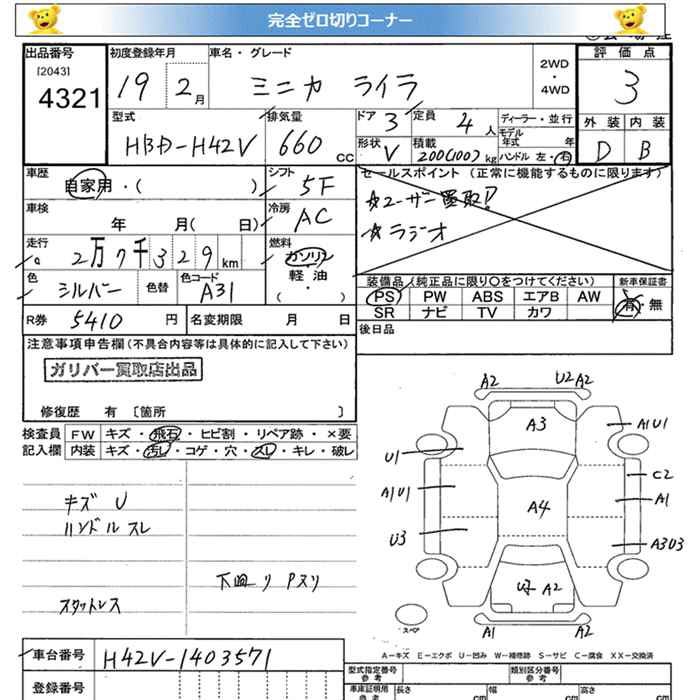 完全ゼロ切りコーナー
出品番号 初度登録年月 車名・グレード 評価点
[2043]
4321 19 2月 ミニカ ライラ 2WD・4WD 3
型式 排気量 ドア 3 定員 4人 ディーラー・並行 外装 内装
モデル年式 年
HBD-H42V 660cc 形状 V 積載 200(100)kg ハンドル 左・右 D B
車歴 シフト セールスポイント (正常に機能するものに限ります)
自家用・( ) 5F ☆ユーザー買取!!
車検 冷房 ☆ラジオ
年 月( 日) AC
走行 燃料
2万7千329km ガソリン
軽油
( ・ )
色 色替 色コード 装備品(純正品に限り○をつけてください) 新車保証書
シルバー A31 PS PW ABS エアB AW 有・無
SR ナビ TV カワ
R券 5410円 名変期限 月 日 後日品
注意事項申告欄(不具合内容等は具体的に記入して下さい)
ガリバー買取店出品
修復歴 有 〔箇所 〕
検査員 FW キズ・飛石・ヒビ割・リペア跡・×要
記入欄 内装 キズ・汚レ・コゲ・穴・スレ・キレ・破レ
キズ U
ハンドル スレ
下回り Pスリ
スタットレス
A2 U2 A2
A3 A1U1
U1
C2
A1U1 A4 A1
U3 A3U3
A2
スペア A1 A2
A-キズ E-エクボ U-凹み W-補修跡 S-サビ C-腐食 XX-交換済
車台番号 H42V-1403571
型式指定番号 参考 類別区分番号 参考
登録番号 車庫証明用 参考 長さ cm 幅 cm 高さ cm